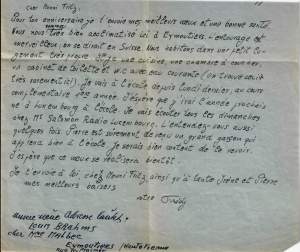 Cher Nonni Fritz,
Pour ton anniversaire je t'envoie mes meilleurs vœux et une bonne santé.
Nous nous très bien acclimatisé ici à Eymoutiers, l'entourage est
merveilleux, on se croirait en Suisse. Nous habitons dans un petit lo-
gement très propre. une cuisine, une chambre à coucher,
un cabinet de toilette et W.C avec eau courante (on trouve ça ici
très rarement ici). Je vais à l'école depuis lundi dernier, au cours
complémentaire année. J'espère que j'irai l'année prochaine
à Luxembourg à l'école. Je vais écouter tous les dimanches
chez Mr Salamon Radio Luxembourg. L'entendez-vous aussi
quelques fois. Pierre est sûrement devenu un grand garçon qui
apprend bien à l'école. Je serais bien content de le revoir.
J'espère que ce vœu se réalisera bientôt.
Je t'envoie à toi, cher Nonni Fritz, ainsi qu'à tante Irène et Pierre
mes meilleurs baisers
votre
Louis BRAHMS
chez Mme
Eymoutiers / Haute Vienne